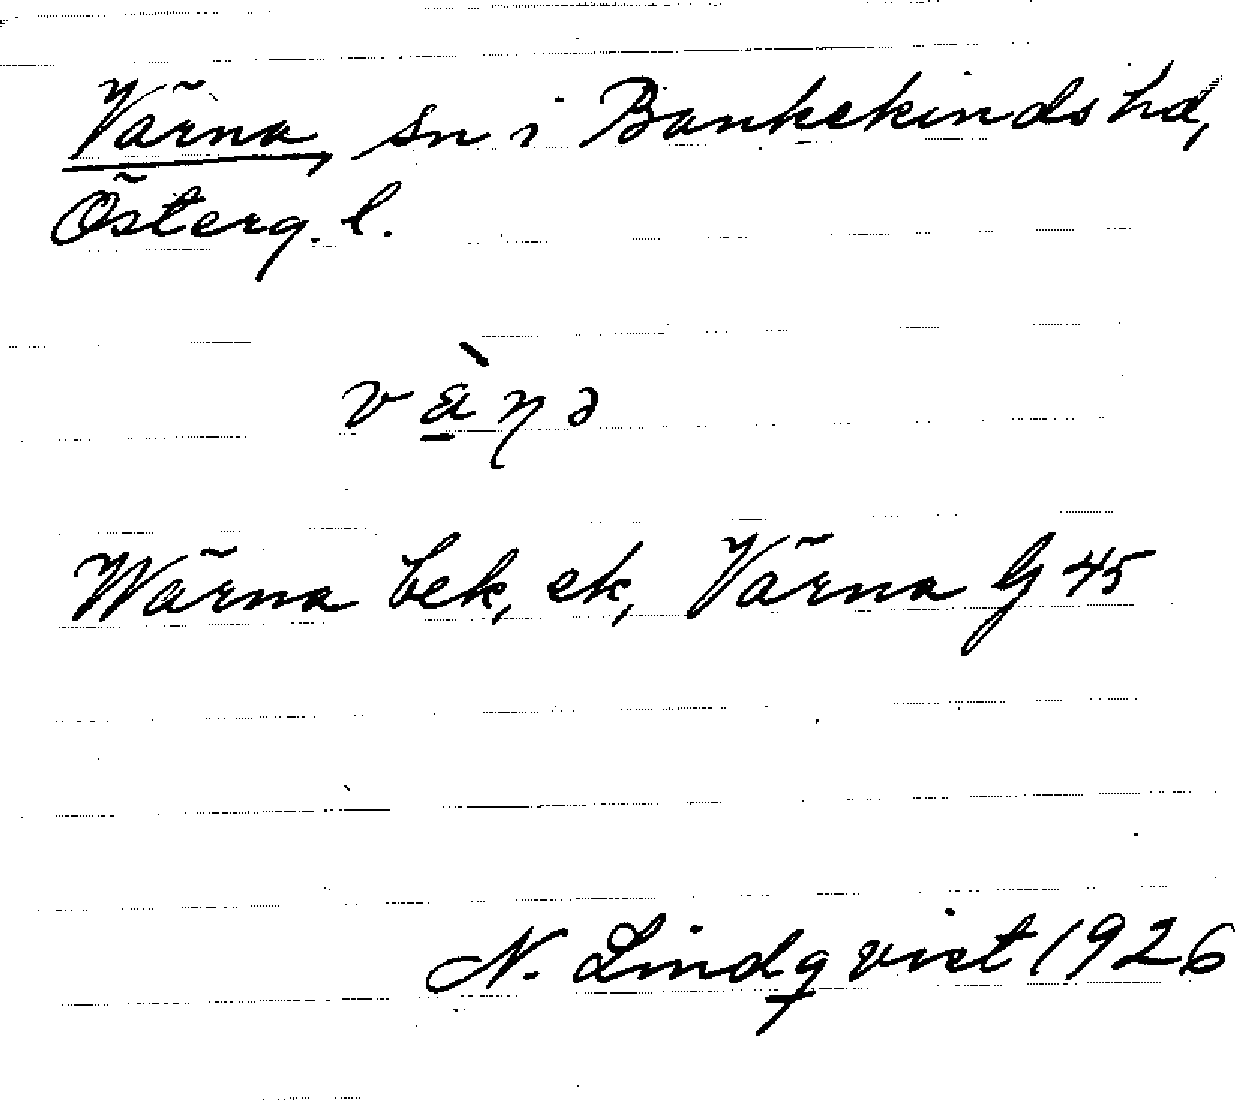 Värna, sn i Bankekinds hd,
Österg. l.
Wärna bek, ek, Värna G 45
N. Lindqvist 1926